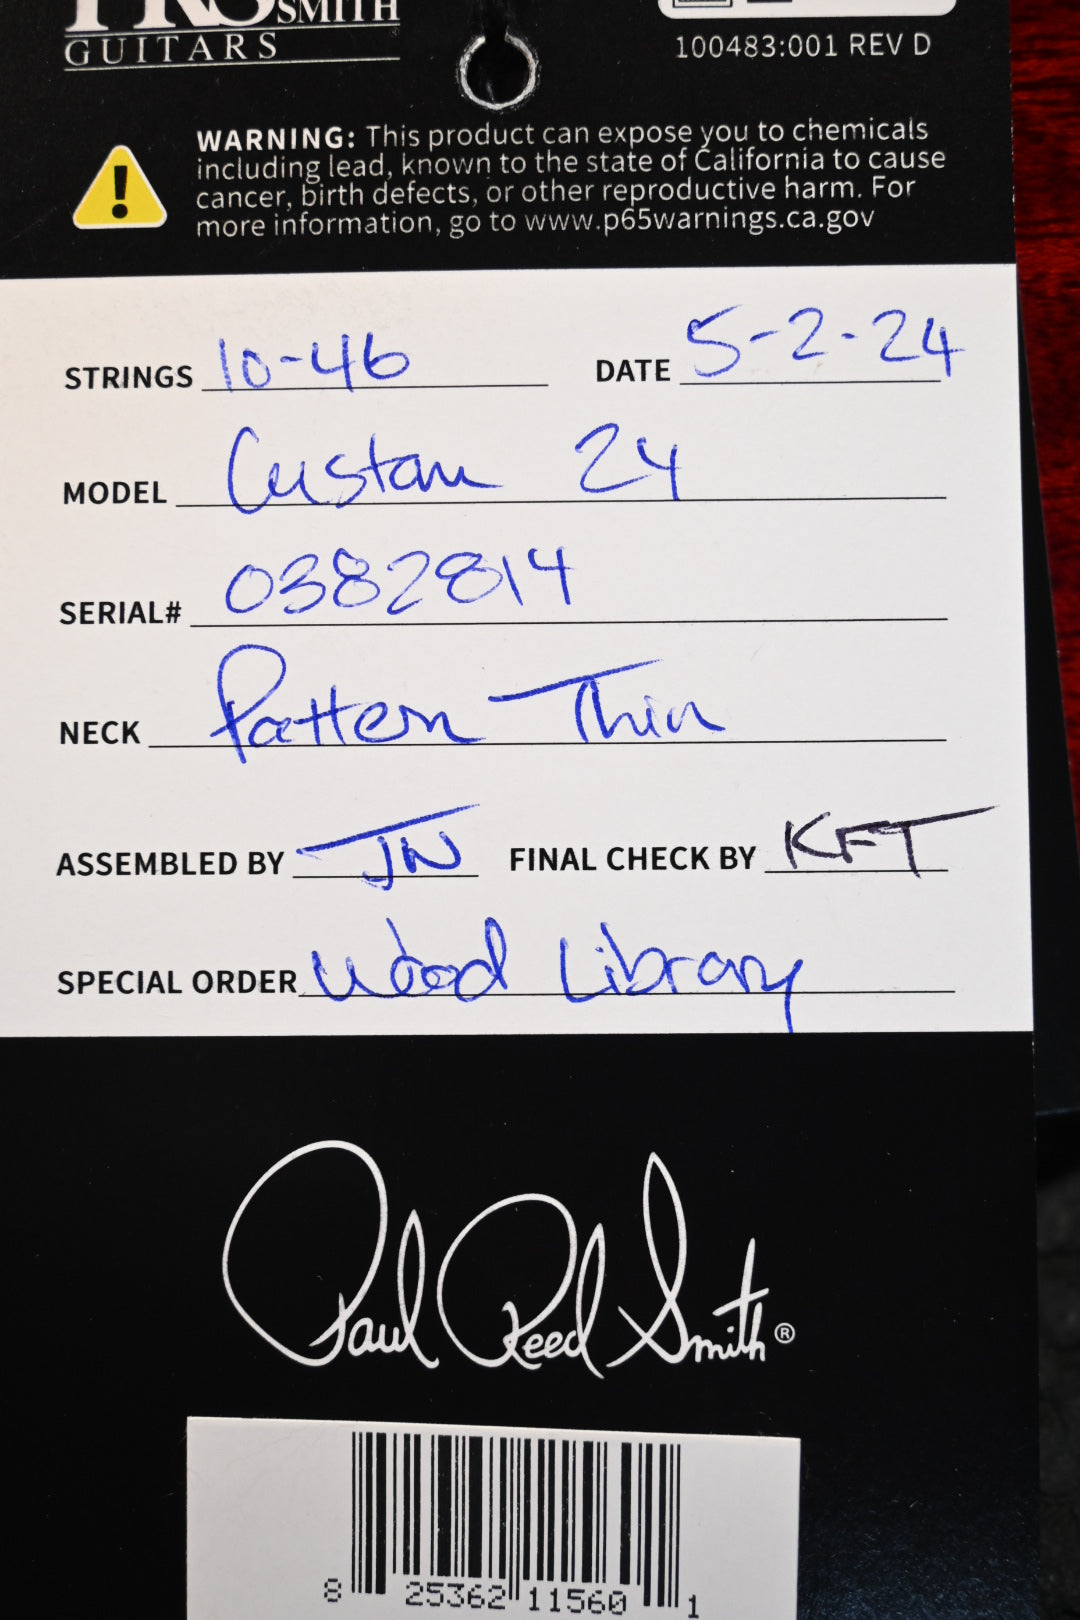 PRS SMITH
GUITARS
100483:001 REV D
WARNING: This product can expose you to chemicals
including lead, known to the state of California to cause
cancer, birth defects, or other reproductive harm. For
more information, go to www.p65warnings.ca.gov
STRINGS 10-46 DATE 5-2-24
MODEL Custom 24
SERIAL# 0382814
NECK Pattern Thin
ASSEMBLED BY JN FINAL CHECK BY KFT
SPECIAL ORDER Wood Library
Paul Reed Smith®
8 25362 11560 1